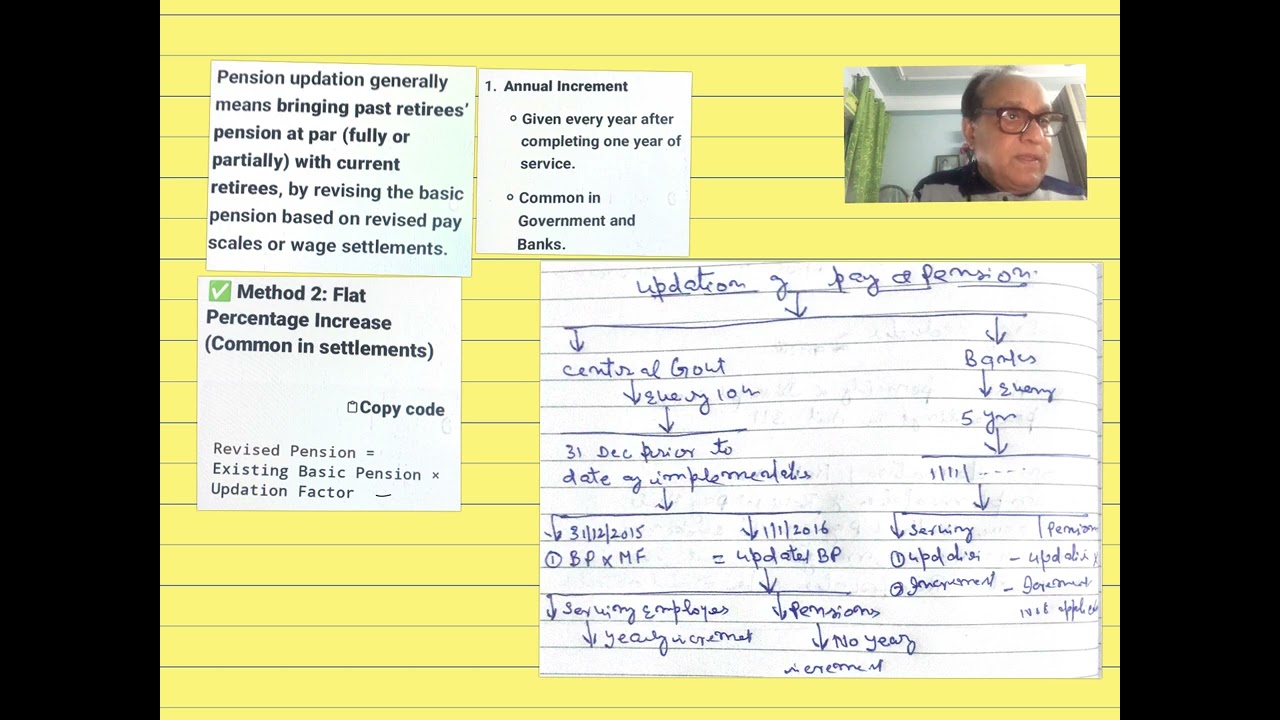 Pension updation generally
means bringing past retirees'
pension at par (fully or
partially) with current
retirees, by revising the basic
pension based on revised pay
scales or wage settlements.
1. Annual Increment
Given every year after
completing one year of
service.
Common in
Government and
Banks.
✅ Method 2: Flat
Percentage Increase
(Common in settlements)
Copy code
Revised Pension =
Existing Basic Pension ×
Updation Factor
updation of pay & Pension
central Govt
Banks
Every 10
Every
5 yr
31 Dec prior to
date of implementation
1/1/1 ----
31/12/2015
1/1/2016
Serving
Pension
① BP × MF
= updated BP
①
②
Serving Employes
Pensions
Yearly
No year
increment